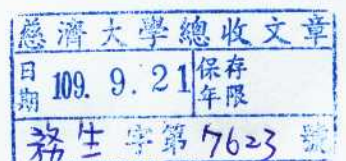 慈濟大學總收文章
日期 109. 9. 21 保存年限
務生 字第 7623 號